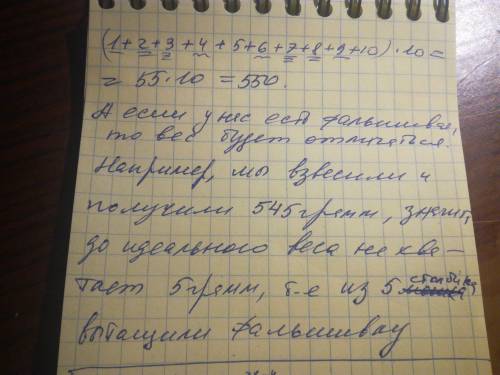 (1+2+3+4+5+6+7+8+9+10)·10=
= 55·10 = 550.
А если у нас есть фальшивая,
то вес будет отличаться.
Например, мы взвесили и
получили 545 грамм, значит,
до идеального веса не хва-
тает 5 грамм, т.е из 5 столбика,
вытащили фальшивку